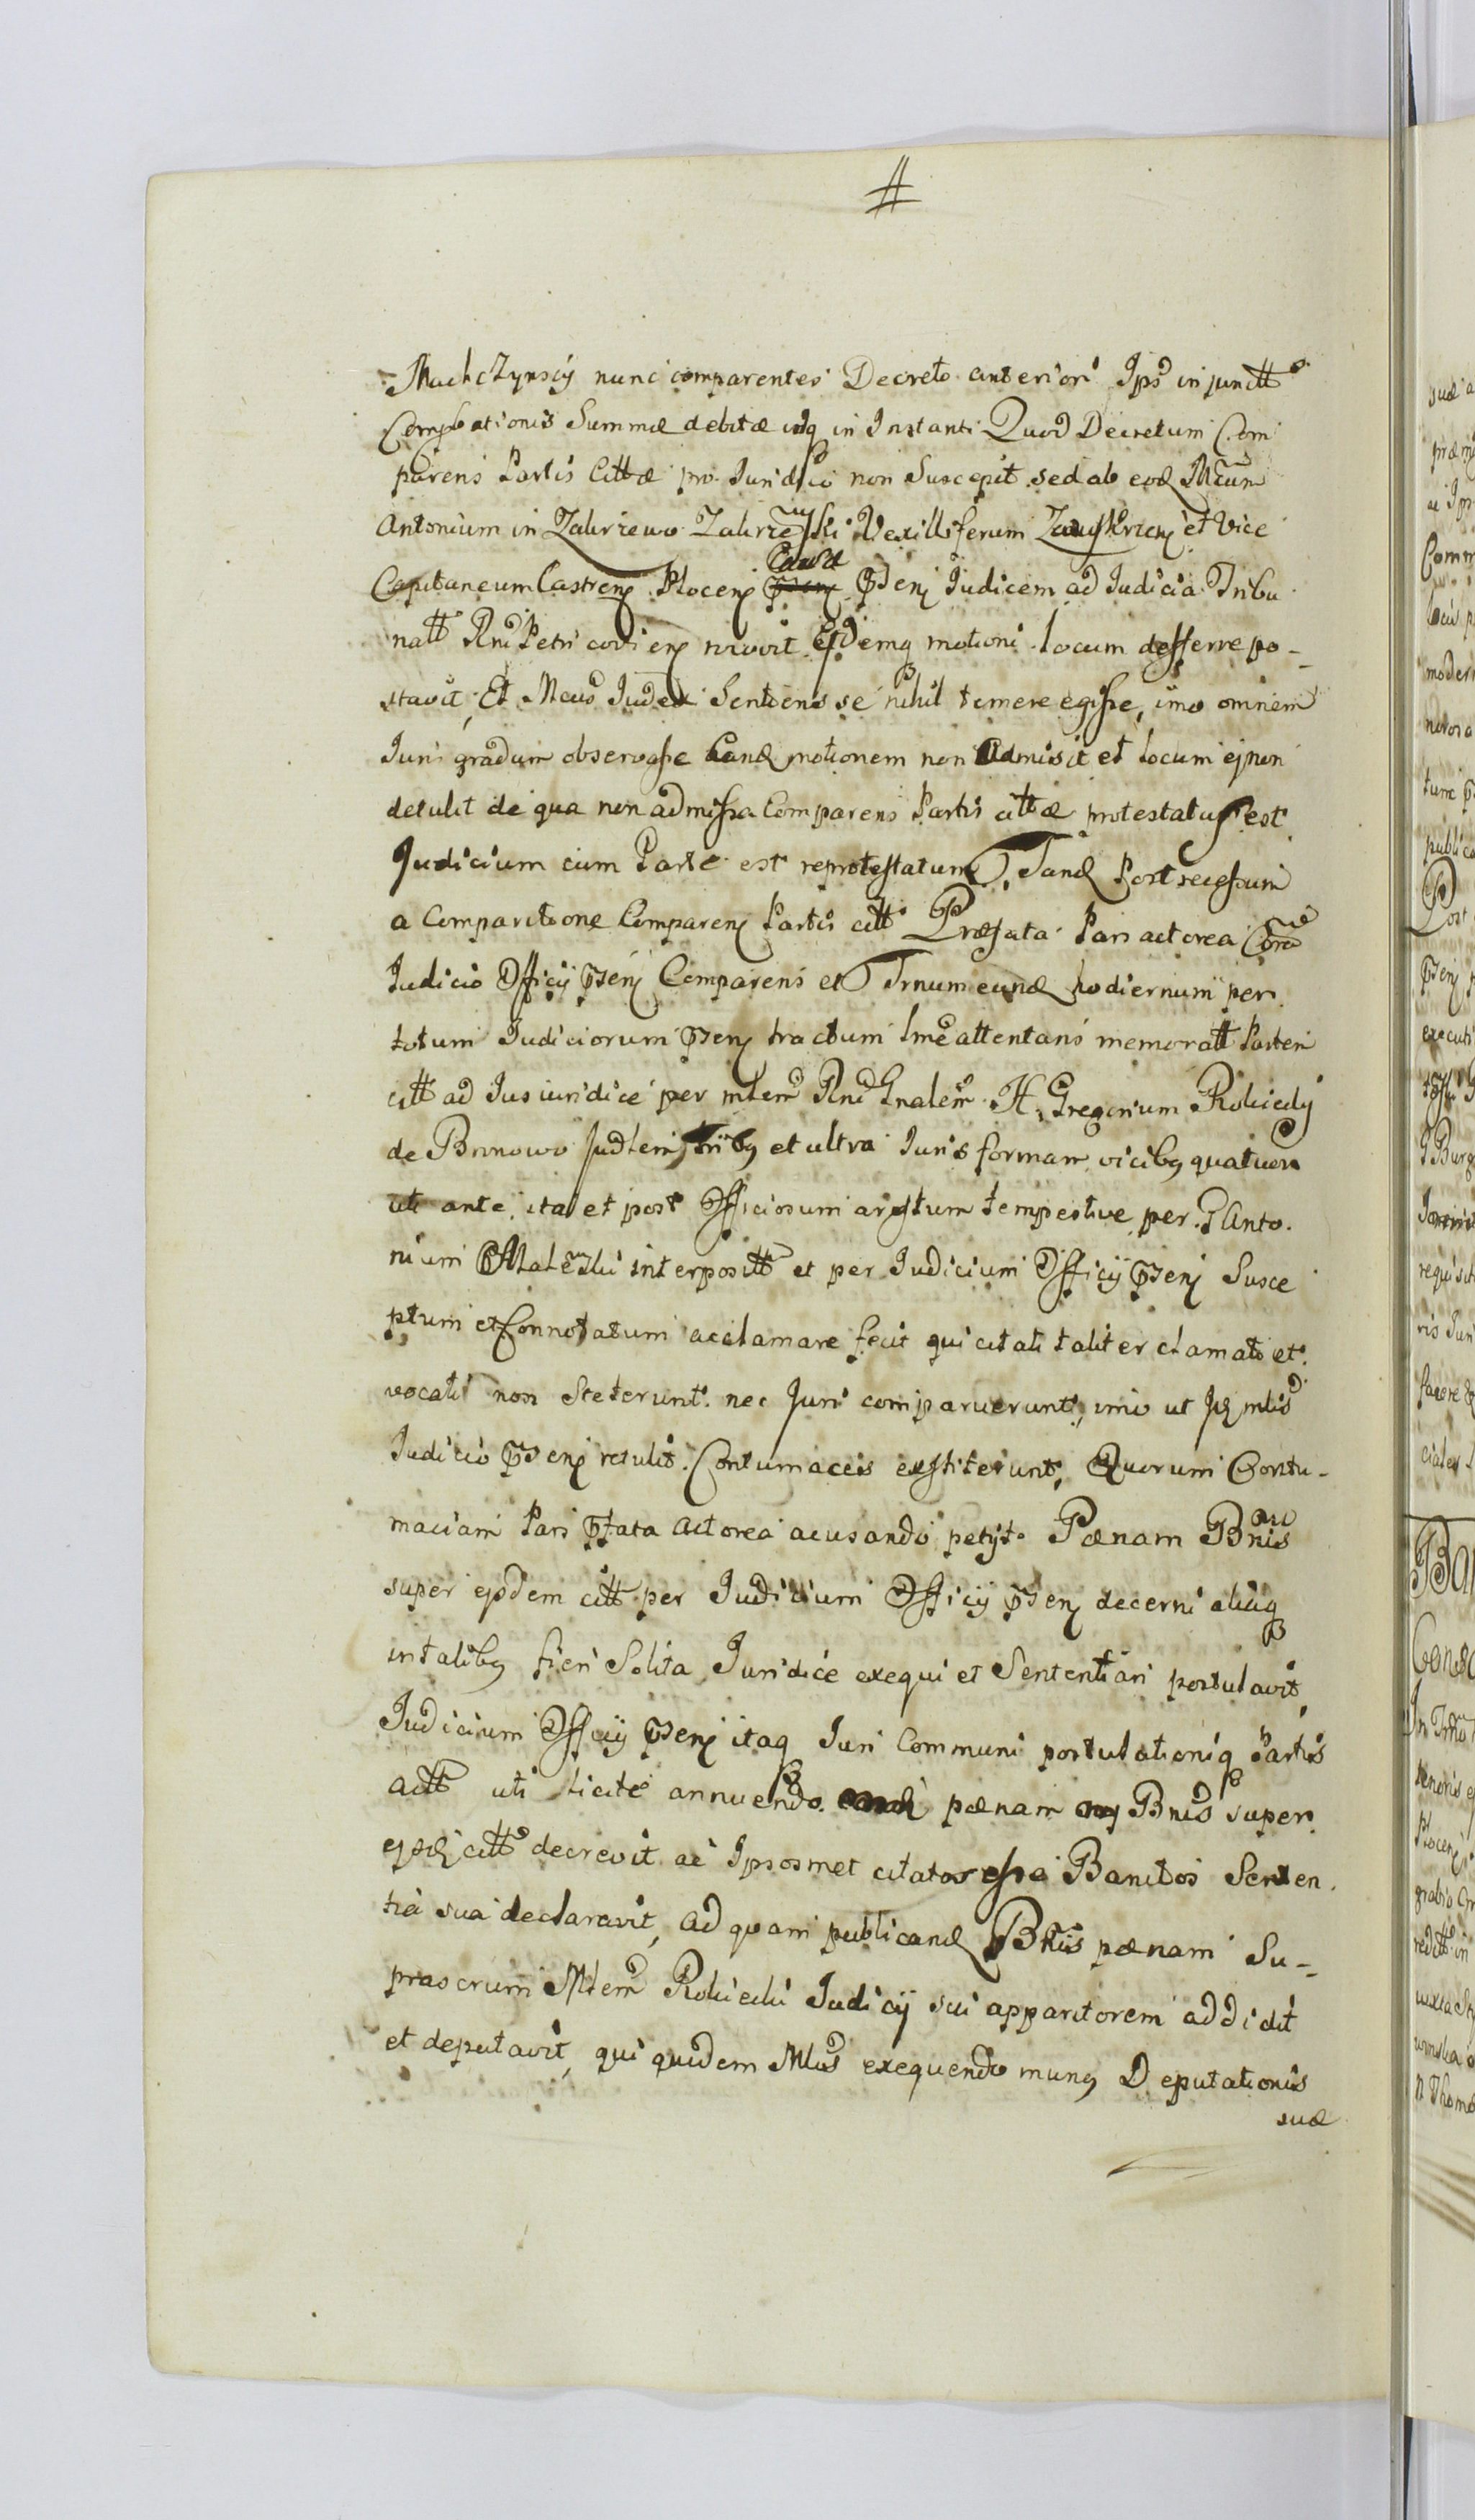 #
Machczynscy nunc comparentes Decreto anteriori Ips injunctt
Comportationis Summæ debitæ idq in Instanti Quod Decretum Com
parens Partis Cittæ pro Juridico non Suscepit sed ab eod Mcum
Antonium in Zakrzewo Zakrzewski Vexilliferum et Vice
Capitaneum Castren Plocen Causæ Pnten Judicem ad Judicia Tribu
natt Rni Petricovien movit Ejdemq motioni locum defferre po-
stavit, Et Mcus Judex Sentiens se nihil temere egisse, imo omnem
Juris gradum observasse Eand motionem non admisit et locum ej non
detulit de qua non admissa Comparens Partis cittæ protestatus est
Judicium cum Parte est reprotestatum, Tand Post recessum
a Comparitione Comparen Partis citt Præfata Pars actorea Coram
Judicio Officij Psen Comparens et Trnum eund hodiernum per
totum Judiciorum Psen tractum lme attentans memoratt Partem
citt ad Jus juridice per mlem Rni Gnalem H. Gregorium Rokicky
de Bronowo Judlem tribq et ultra Juris formam vicibq quatuor
uti ante, ita et post Officiosum arestum tempestive per G Anto
nium interpositt et per Judicium Officij Psen Susce
ptum et Connotatum acclamare fecit qui citati taliter clamati et
vocati non Steterunt nec Juri comparuerunt, imo ut Id mlis
Judicio Psen retulit Contumaces exstiterunt, Quorum Contu-
maciam Pars Pfata actorea acusando petijt Pænam Bnis
super ejsdem citt per Judicium Officij Psen decerni aliaq
in talibq fieri Solita Juridice exequi et Sententiari postulavit
Judicium Officij Psen itaq Juri Communi postulationiq Partis
actt uti licite annuendo pænam Bnis super
ejsd citt decrevit ac Ipsosmet citatos esse Banitos Senten
tia sua declaravit, ad quam publicand Bnis pænam Su-
prascrum Mlem Rokicki Judicij sui apparitorem addidit
et deputavit, qui quidem Mlis exequendo munq Deputationis
suæ